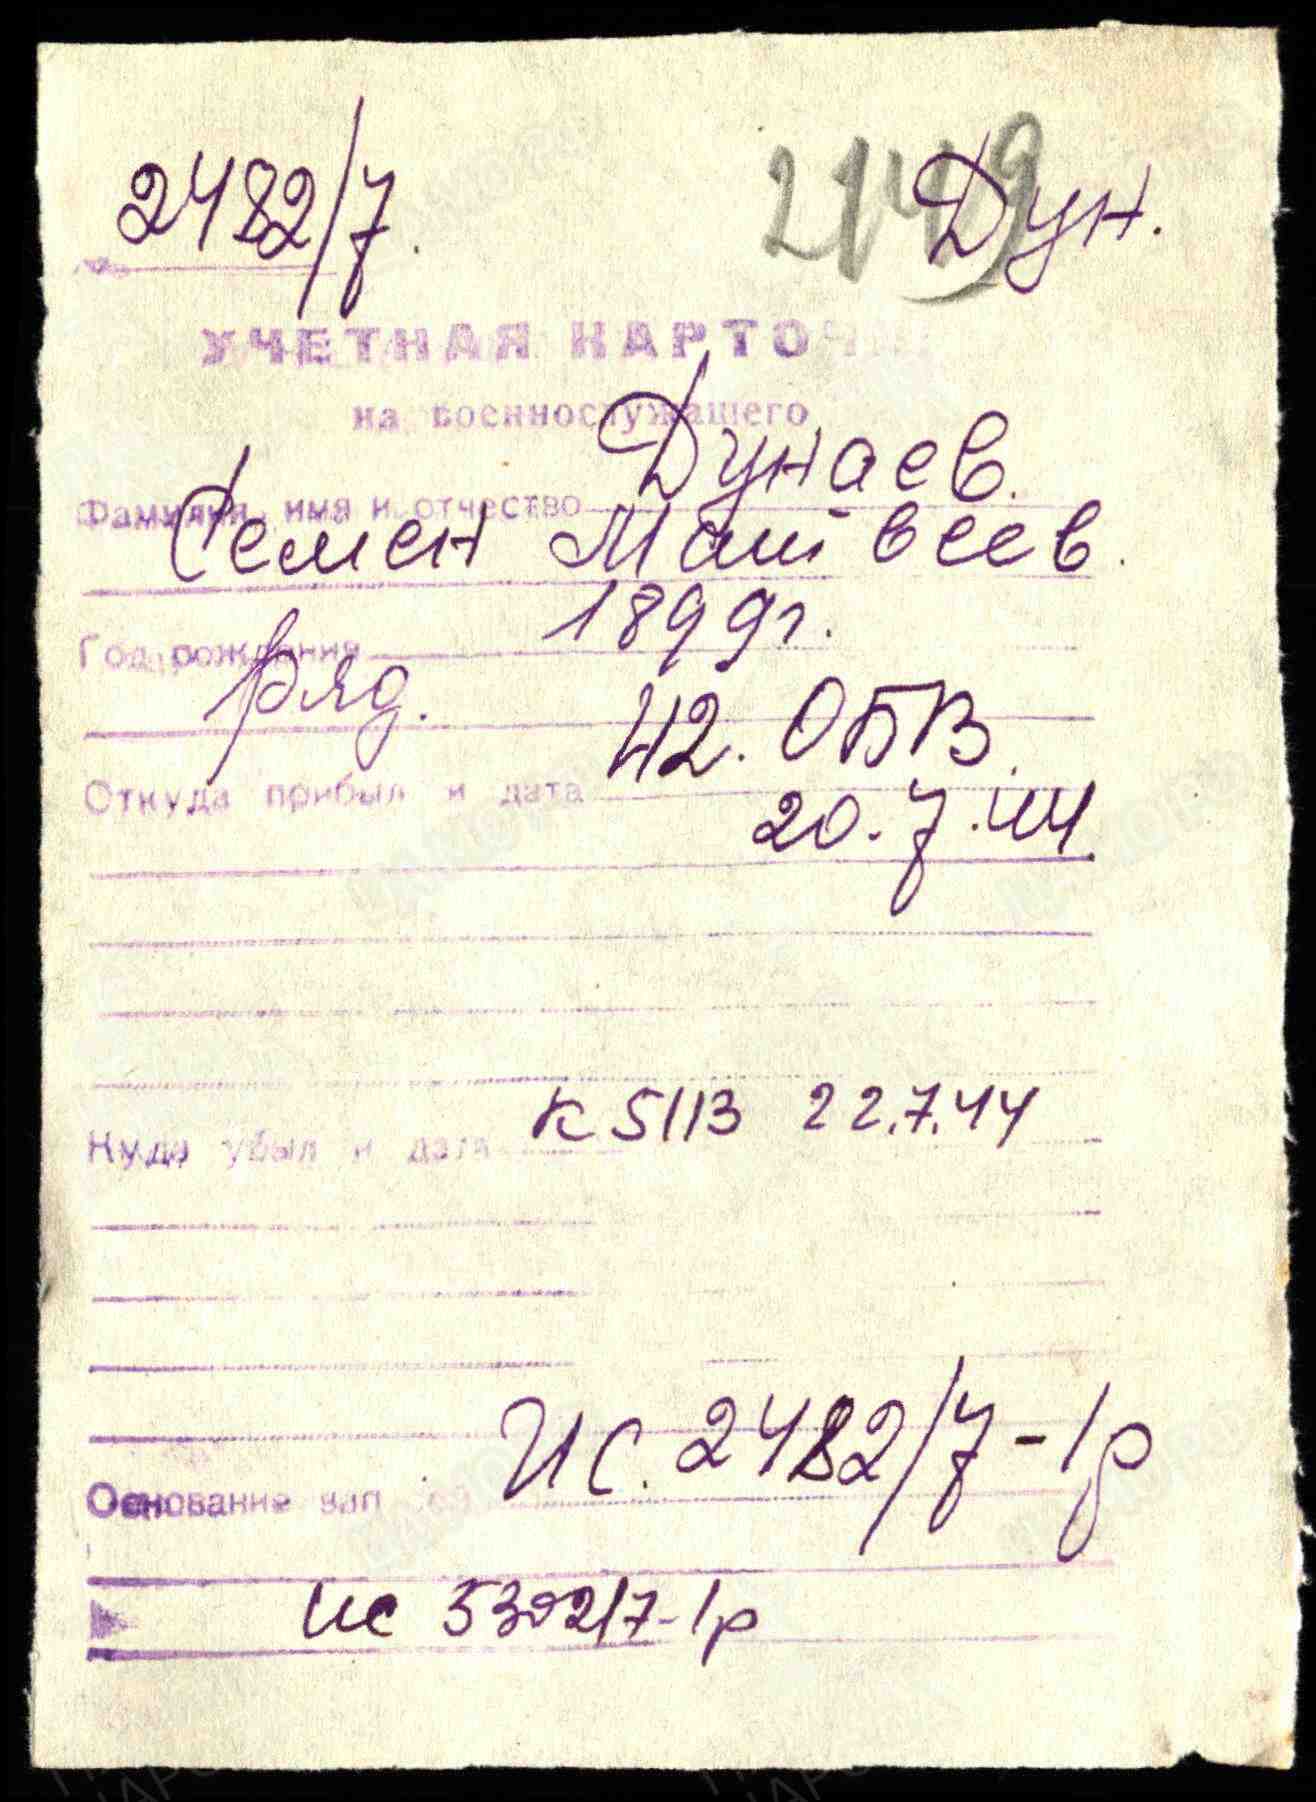 2482/7.
2149
Дун.
УЧЕТНАЯ КАРТОЧКА
на военнослужащего
Дунаев.
Фамилия, имя и отчество
Семен Матвеев.
1899г.
Год рождения
ряд.
42. ОБВ.
Откуда прибыл и дата
20.7.44.
К 5113 22.7.44
Куда убыл и дата
ИС. 2482/7-1р
Основание зап
ис 5392/7-1р